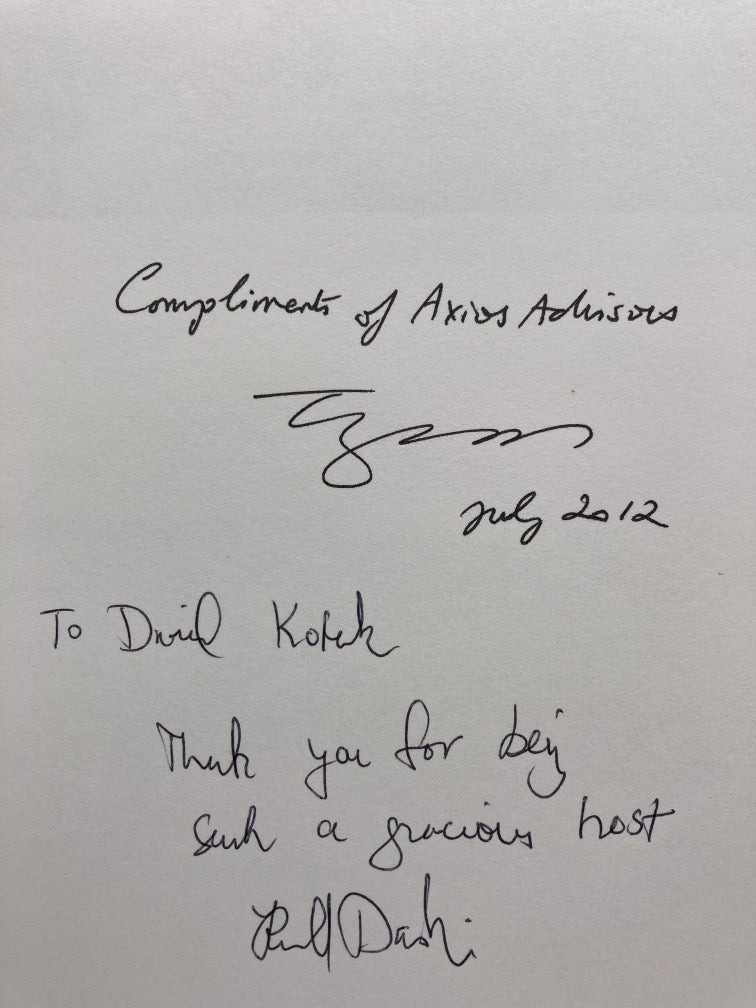 Compliments of Axios Advisors
July 2012
To David Kotok
Thank you for being
such a gracious host